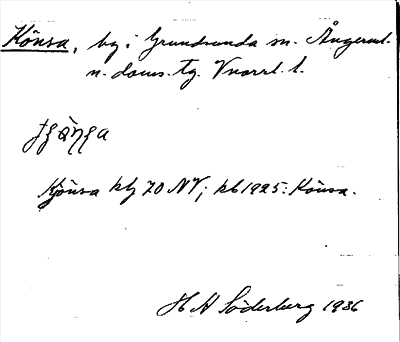 Könsa, by i Grundsunda sn. Ångerml.
n. doms. tg. Vnorrl. l.
Kjönsa kbg 70 NV; kb 1925: Könsa.
H A Söderberg 1936